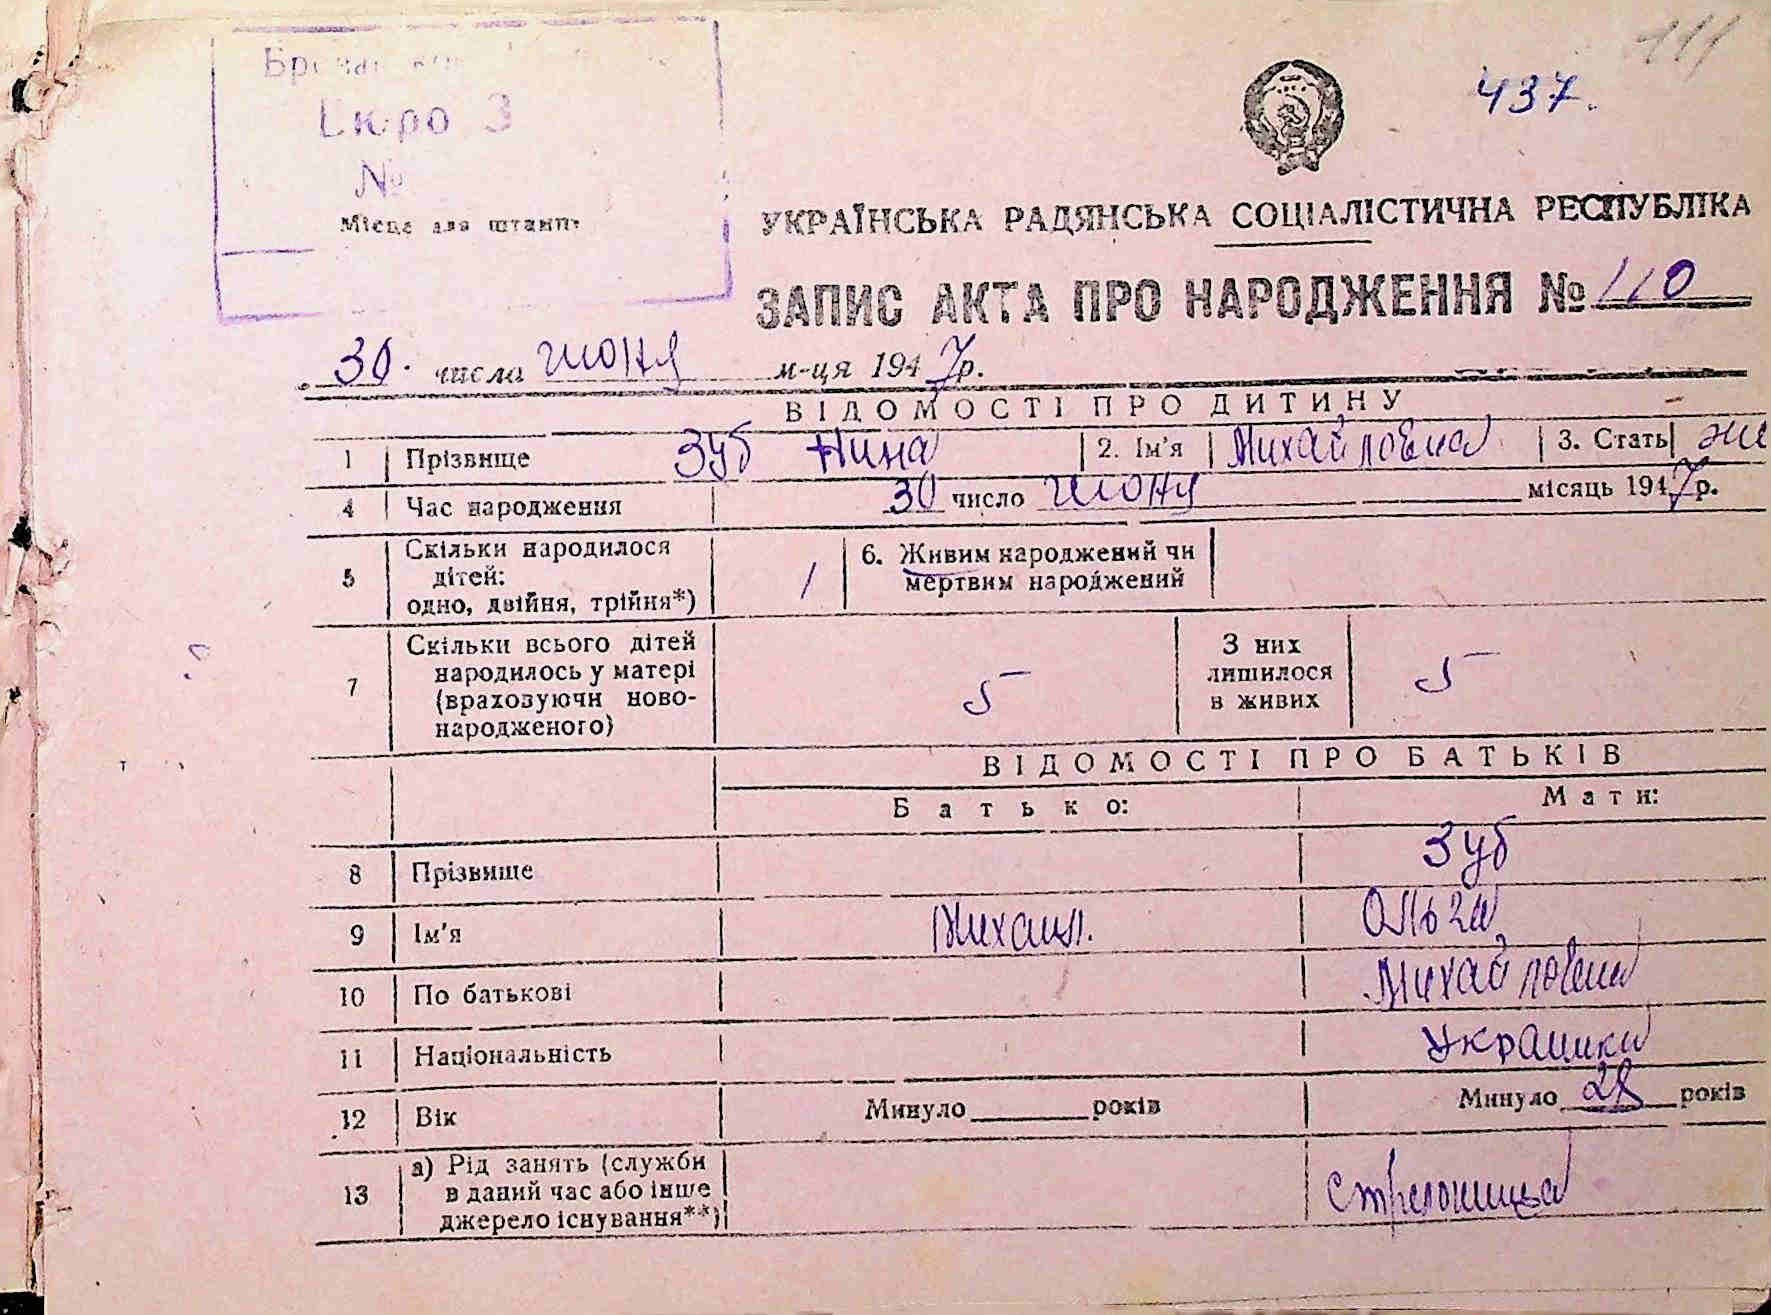 111
437.
Бюро З
№
Місце для штампу
УКРАЇНСЬКА РАДЯНСЬКА СОЦІАЛІСТИЧНА РЕСПУБЛІКА
ЗАПИС АКТА ПРО НАРОДЖЕННЯ № 110
30. числа июня м-ця 1947р.
ВІДОМОСТІ ПРО ДИТИНУ
1 Прізвище Зуб Нина 2. Ім'я Михайловна 3. Стать же
4 Час народження 30 число июня місяць 1947р.
5 Скільки народилося дітей: одно, двійня, трійня*) 1 6. Живим народжений чи мертвим народжений
7 Скільки всього дітей народилось у матері (враховуючи новонародженого) 5 З них лишилося в живих 5
ВІДОМОСТІ ПРО БАТЬКІВ
Батько: Мати:
8 Прізвище Зуб
9 Ім'я Михаил. Ольга
10 По батькові Михайловна
11 Національність Украинка
12 Вік Минуло років Минуло 28 років
13 а) Рід занять (служби в даний час або інше джерело існування**)